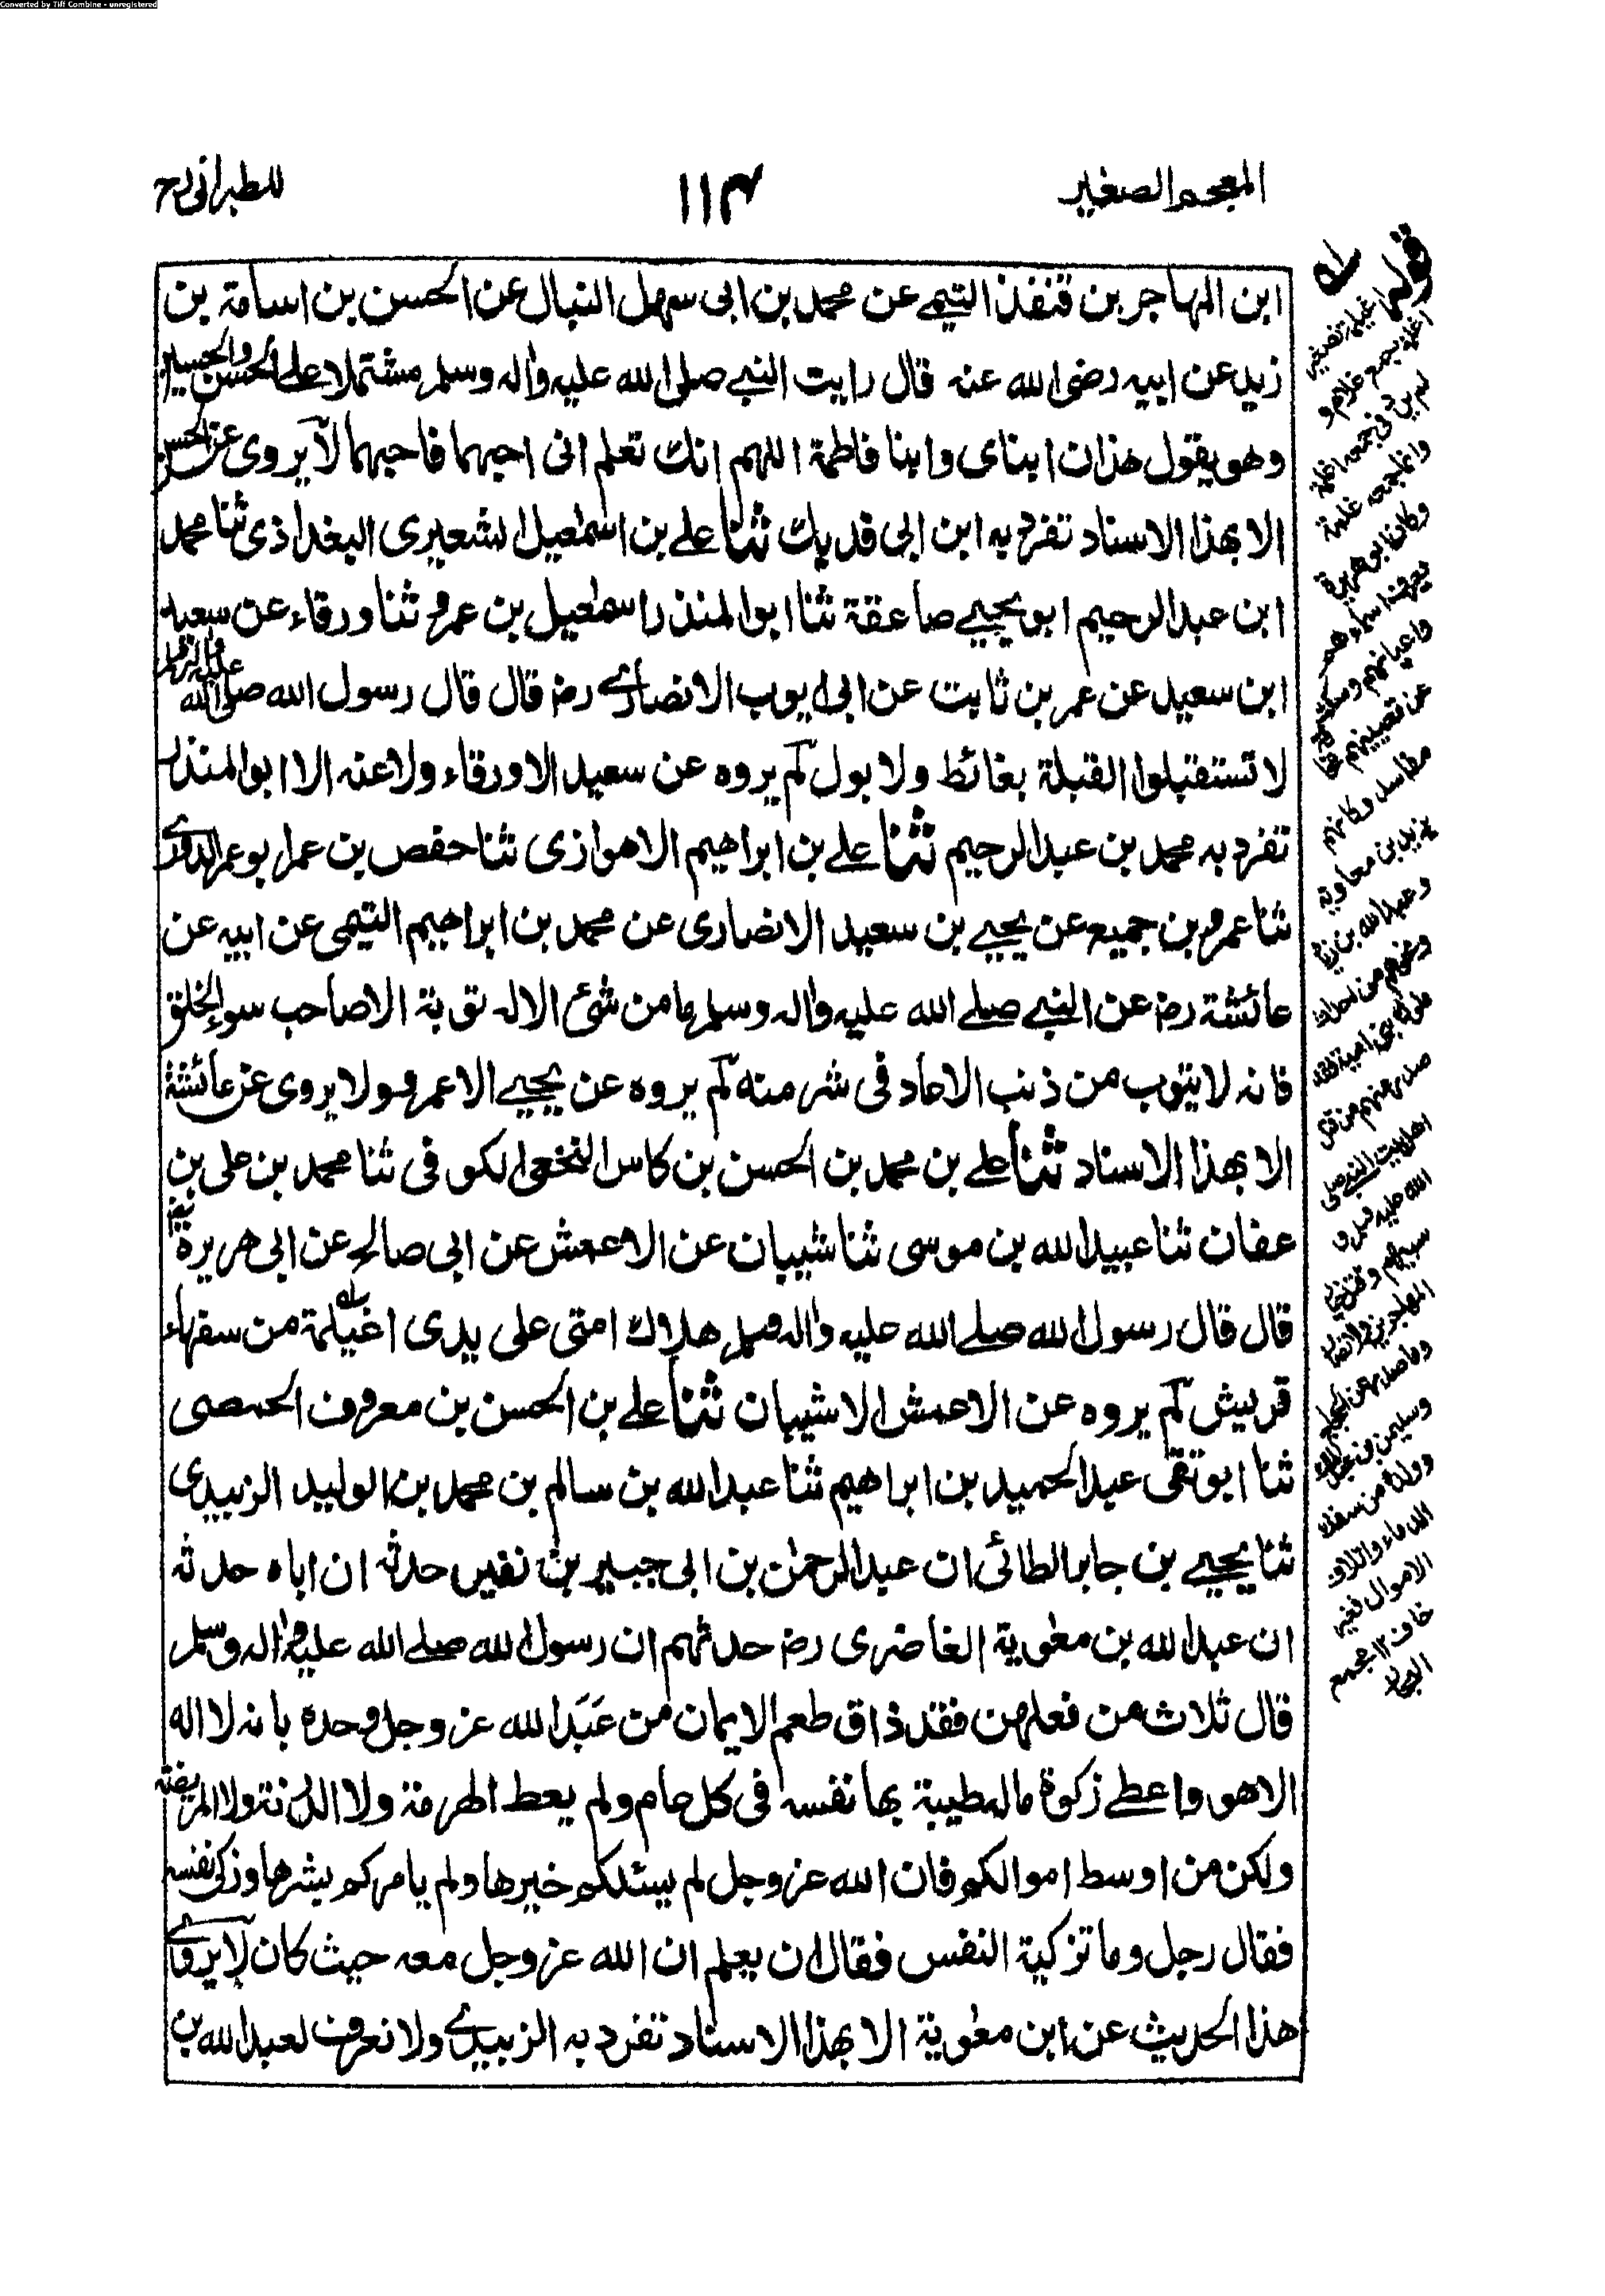 Converted by Tiff Combine - unregistered
المعجم الصغير
١١٣
للطبرانى رح
ابن المهاجر بن قنفذ التيمے عن محمد بن ابى سهل النبال عن الحسن بن اسامة بن
زيد عن ابيه رضى الله عنه قال رايت النبے صلى الله عليه واله وسلم مشتملا على الحسن والحسين
وهو يقول هذان ابناى وابنا فاطمة اللهم انك تعلم انى احبهما فاحبهما لا يروى عن الحسن
الا بهذا الاسناد تفرد به ابن ابى فديك ثنا علے بن اسمٰعيل الشعيرى البغداذى ثنا محمد
ابن عبد الرحيم ابو يحيے صاعقة ثنا ابو المنذر اسمٰعيل بن عمرو ثنا ورقاء عن سعيد
ابن سعيد عن عمر بن ثابت عن ابى ايوب الانصارے رضہ قال قال رسول الله صلى الله عليه واله وسلم
لا تستقبلوا القبلة بغائط ولا بول لم يروه عن سعيد الا ورقاء ولا عنه الا ابو المنذر
تفرد به محمد بن عبد الرحيم ثنا علے بن ابراهيم الاهوازى ثنا حفص بن عمر ابو عمر الدورے
ثنا عمرو بن جميع عن يحيے بن سعيد الانصارى عن محمد بن ابراهيم التيمى عن ابيه عن
عائشة رضہ عن النبے صلے الله عليه واله وسلم ما من شئ الا له توبة الا صاحب سوء الخلق
فانه لا يتوب من ذنب الا عاد فى شر منه لم يروه عن يحيے الا عمرو ولا يروى عن عائشة
الا بهذا الاسناد ثنا علے بن محمد بن الحسن بن كاس النخعى الكوفى ثنا محمد بن على بن
عفان ثنا عبيد الله بن موسى ثنا شيبان عن الاعمش عن ابى صالح عن ابى هريرة رضہ
قال قال رسول الله صلے الله عليه واله وسلم هلاك امتى على يدى اغيلمة من سفهاء
قريش لم يروه عن الاعمش الا شيبان ثنا علے بن الحسن بن معروف الحمصى
ثنا ابو تقى عبد الحميد بن ابراهيم ثنا عبد الله بن سالم بن محمد بن الوليد الزبيدى
ثنا يحيے بن جابر الطائى ان عبد الرحمٰن بن ابى جبير بن نفير حدثه ان اباه حدثه
ان عبد الله بن معٰوية الغاضرى رضہ حدثهم ان رسول الله صلے الله عليه واله وسلم
قال ثلاث من فعلهن فقد ذاق طعم الايمان من عَبَدَ الله عز وجل وحده بانه لا اله
الا هو واعطے زكوة ماله طيبة بها نفسه فى كل عام ولم يعط الهرمة ولا الدرنة ولا المريضة
ولكن من اوسط اموالكم فان الله عز وجل لم يسئلكم خيرها ولم يامركم بشرها وزكى نفسه
فقال رجل وما تزكية النفس فقال ان يعلم ان الله عز وجل معه حيث كان لا يروے
هذا الحديث عن ابن معٰوية الا بهذا الاسناد تفرد به الزبيدے ولا نعرف لعبد الله بن
قوله اغيلمة تصغير
اغلمة بجمع غلام و
لم يرد فى جمعه اغلمة
وانما جمعه غلمة
وكان ابو هريرة
يعرف اسماءهم
واعيانهم وسكت
عن تعيينهم
مفاسد وكانهم
يزيد بن معاوية
وعبيد الله بن زياد
ونحوهم من احداث
ملوك بنى امية فقد
صدر عنهم من قتل
اهل بيت النبے صلى
الله عليه وسلم و
سبيهم وقتل خيار
المهاجرين والانصار
وما صدر عن الحجاج
وسليمن بن عبد الملك
وولده من سفك
الدماء واتلاف
الاموال فغير
خاف ١٢ مجمع
البحار